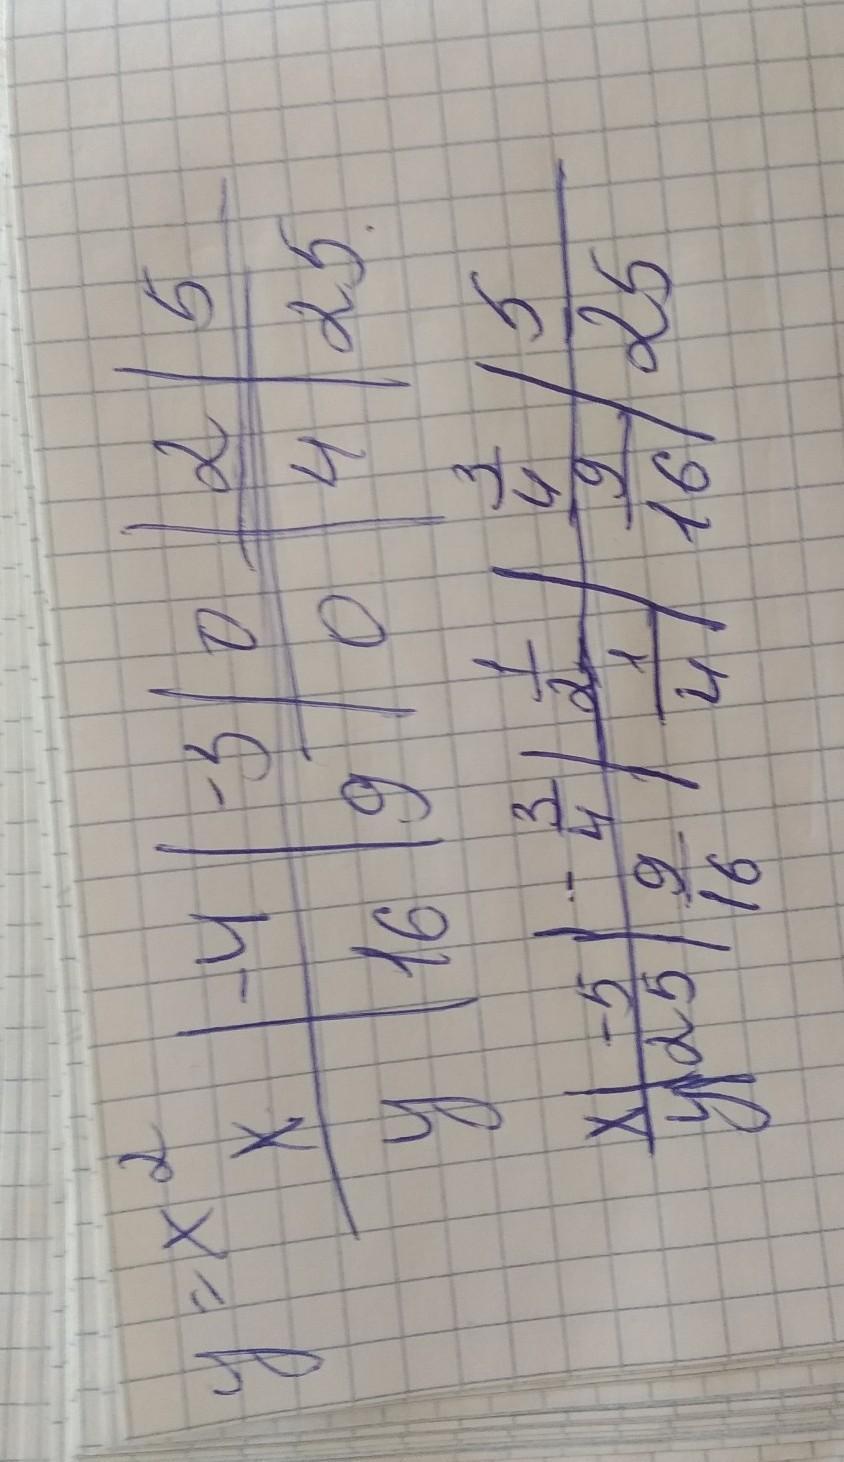 y = x²
x | -4 | -3 | 0 | 2 | 5
y | 16 | 9 | 0 | 4 | 25.
x | -5 | -3/4 | 1/2 | 3/4 | 5
y | 25 | 9/16 | 1/4 | 9/16 | 25